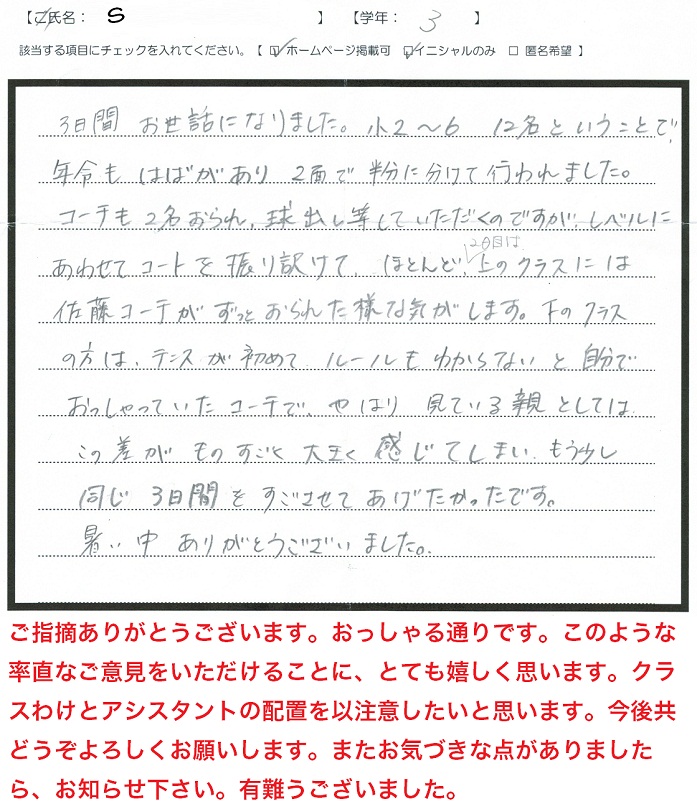 【 ご氏名： S 】 【学年： 3 】
該当する項目にチェックを入れてください。【 ☑ ホームページ掲載可 ☑ イニシャルのみ □ 匿名希望 】
3日間 お世話になりました。小2～6 12名ということで、
年令も はばがあり 2面で 半分に分けて行われました。
コーチも2名おられ、球出し等していただくのですが、レベルに
2日目は
あわせてコートを振り訳けて ほとんど、上のクラスには
佐藤コーチがずっとおられた様な気がします。下のクラス
の方は、テニスが初めて ルールもわからないと自分で
おっしゃっていたコーチで、やはり 見ている親としては
この差がものすごく大きく感じてしまい、もう少し
同じ3日間をすごさせてあげたかったです。
暑い中 ありがとうございました。
ご指摘ありがとうございます。おっしゃる通りです。このような
率直なご意見をいただけることに、とても嬉しく思います。クラ
スわけとアシスタントの配置を以注意したいと思います。今後共
どうぞよろしくお願いします。またお気づきな点がありました
ら、お知らせ下さい。有難うございました。